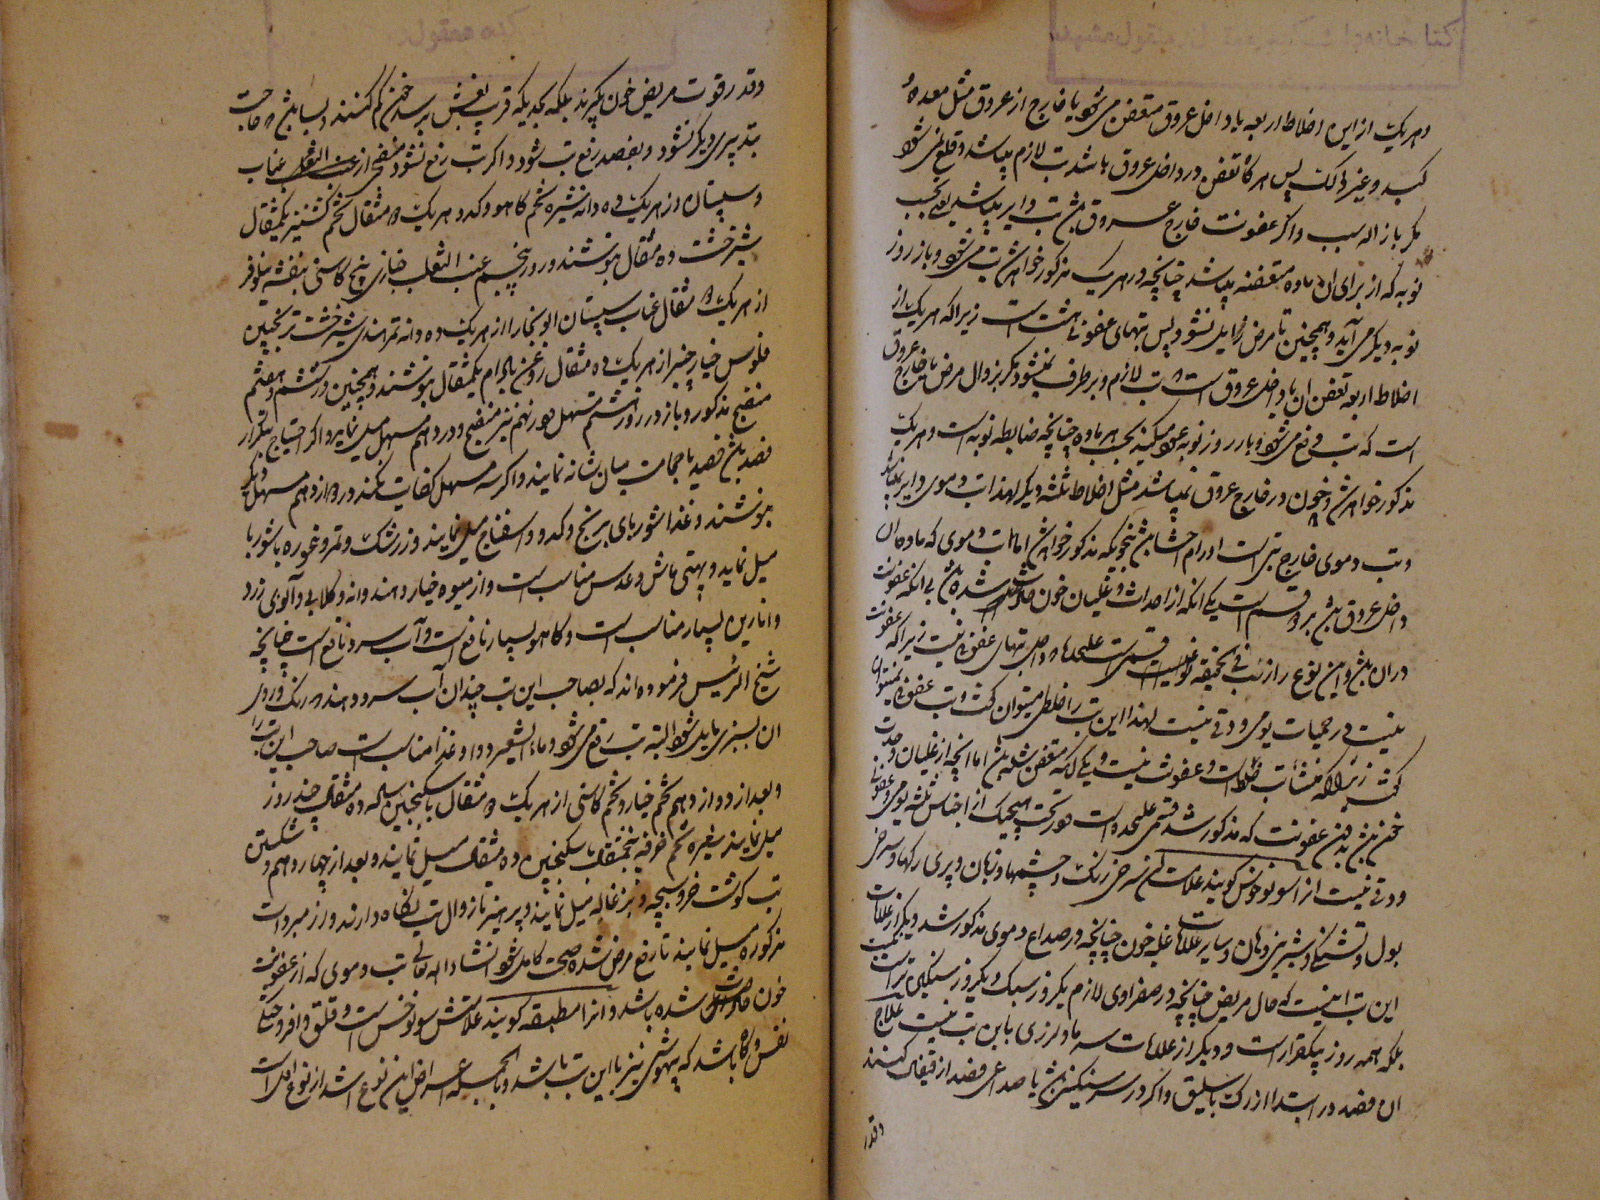 و هر یک از این اخلاط اربعه یا داخل عروق متعفن می شود یا خارج از عروق مثل معده و
کبد و غیر ذالک پس هر گاه تعفن در داخل عروق باشد تب لازم میباشد و قلع نمی شود
مگر بازاله سبب و اگر عفونت خارج عروق باشد تب دایر میباشد یعنی بحسب
نوبه که از برای آن ماده متعفنه میباشد چنانچه در هر یک مذکور خواهد شد تب می شود و باز روز
نوبه دیگر می آید و همچنین تا مرض زایل نشود پس تبهای عفونه هشت است زیرا که هر یک از
اخلاط اربعه تعفن آن یا داخل عروق است و تب لازم و برطرف نمیشود مگر بزوال مرض یا خارج عروق
است که تب رفع می شود و باز روز نوبه عود میکند بحسب هر ماده چنانچه ضابطه نوبه است و هر یک
مذکور خواهد شد و خون در خارج عروق نمیباشد مثل اخلاط ثلثه دیگر لهذا تب دموی دایر نمیباشد
و تب دموی خارج تب است اورام احشا باشد بنحویکه مذکور خواهد شد اما تب دموی که ماده آن
داخل عروق باشد بر دو قسم است یکی آنکه از احداث غلیان خون حادث شده باشد بی آنکه عفونت
در آن باشد و این نوع را از تب فی الحقیقه قسمیست علیحده و داخل تبهای عفونه نیست زیرا که عفونت
نیست در حمیات یومی و دقی نیست لهذا این تب را خلطی میتوان گفت و تب عفونه نمیتوان
گفت زیرا که منشأ تب خلط است و عفونت نیست و یکی آنکه متعفن شده باشد اما آنچه از غلیان و حدت
خون باشد بدون عفونت که مذکور شد قسمی علیحده است در تحت هیچیک از اجناس ثلثه یومی و عفونی
و دقی نیست از اسونوخس گویند علامت آن سرخی رنگ و چشمها و زبان و پری رگها و سرخی
بول و تشنگی و شیرینی دهان و سایر علامات غلبه خون چنانچه در صداع دموی مذکور شد و دیگر از علامات
این تب اینست که حال مریض چنانچه در صفراوی لازم یکروز سبک و یکروز سنگین تر است نیست
بلکه همه روز بیکقرار است و دیگر از علامات سرما و لرزی با این تب نیست علاج
آن فصد در ابتدا از رگ باسلیق و اگر در سر سنگینی باشد یا صداعی فصد از قیفال کنند
و قدر
و قدر قوت مریض خون بگیرند بلکه بحدیکه قریب بغش برسد خون کم کنند و بسا باشد که حاجت
بتدبیری دیگر نشود و بفصد رفع تب شود و اگر تب رفع نشود منضجی از عنب الثعلب عناب
و سپستان از هر یک ده دانه شیره تخم کاهو و کدو هر یک دو مثقال تخم گشنیز یکمثقال
شیرخشت ده مثقال بنوشند و روز پنجم عنب الثعلب خبازی بیخ کاسنی بنفشه نیلوفر
از هر یک دو مثقال عناب سپستان آلو بخارا از هر یک ده دانه تمرهندی شیرخشت ترنجبین
فلوس خیار چنبر از هر یک ده مثقال روغن بادام یکمثقال بنوشند و همچنین در ششم و هفتم
منضج مذکور و باز در روز هشتم مسهل و روز نهم نیز منضج و در دهم مسهل میل نمایند و اگر احتیاج بتکرار
فصد باشد فصد یا حجامت میان شانه نمایند و اگر سه مسهل کفایت نکند در دوازدهم مسهل دیگر
بنوشند و غذا شوربای برنج و کدو و اسفناج میل نمایند و زرشک و تمر و غوره با شوربا
میل نماید و پهتی ماش و عدس مناسب است و از میوه خیار و هندوانه و گلابی و آلوی زرد
و انارین بسیار مناسب است و کاهو بسیار نافع است و آب سرد نافع است چنانچه
شیخ الرئیس فرموده اند که بصاحب این تب چندان آب سرد دهند که رنگ و روی
آن بسبزی مایل شود البته تب رفع می شود و ماء الشعیر دوا و غذا مناسب است صاحب این تب را
و بعد از دوازدهم تخم خیار و تخم کاسنی از هر یک دو مثقال با سکنجبین ساده ده مثقال چند روز
میل نمایند شیره تخم خرفه پنجمثقال با سکنجبین ده مثقال میل نمایند و بعد از چهاردهم و شکستن
تب گوشت خروسبچه و بزغاله میل نمایند و پرهیز تا زوال تب نگاه دارند و از مبردات
مذکوره میل نمایند تا رفع مرض شده صحت کامل شود انشاء اله تعالی تب دموی که از عفونت
خون حادث شده باشد و آنرا مطبقه گویند علامتش سونوخس است و قلق و افروختگی
نفس و گاه باشد که بیهوشی نیز با این تب باشد و بالجمله اعراض این نوع اشد از نوع اول است